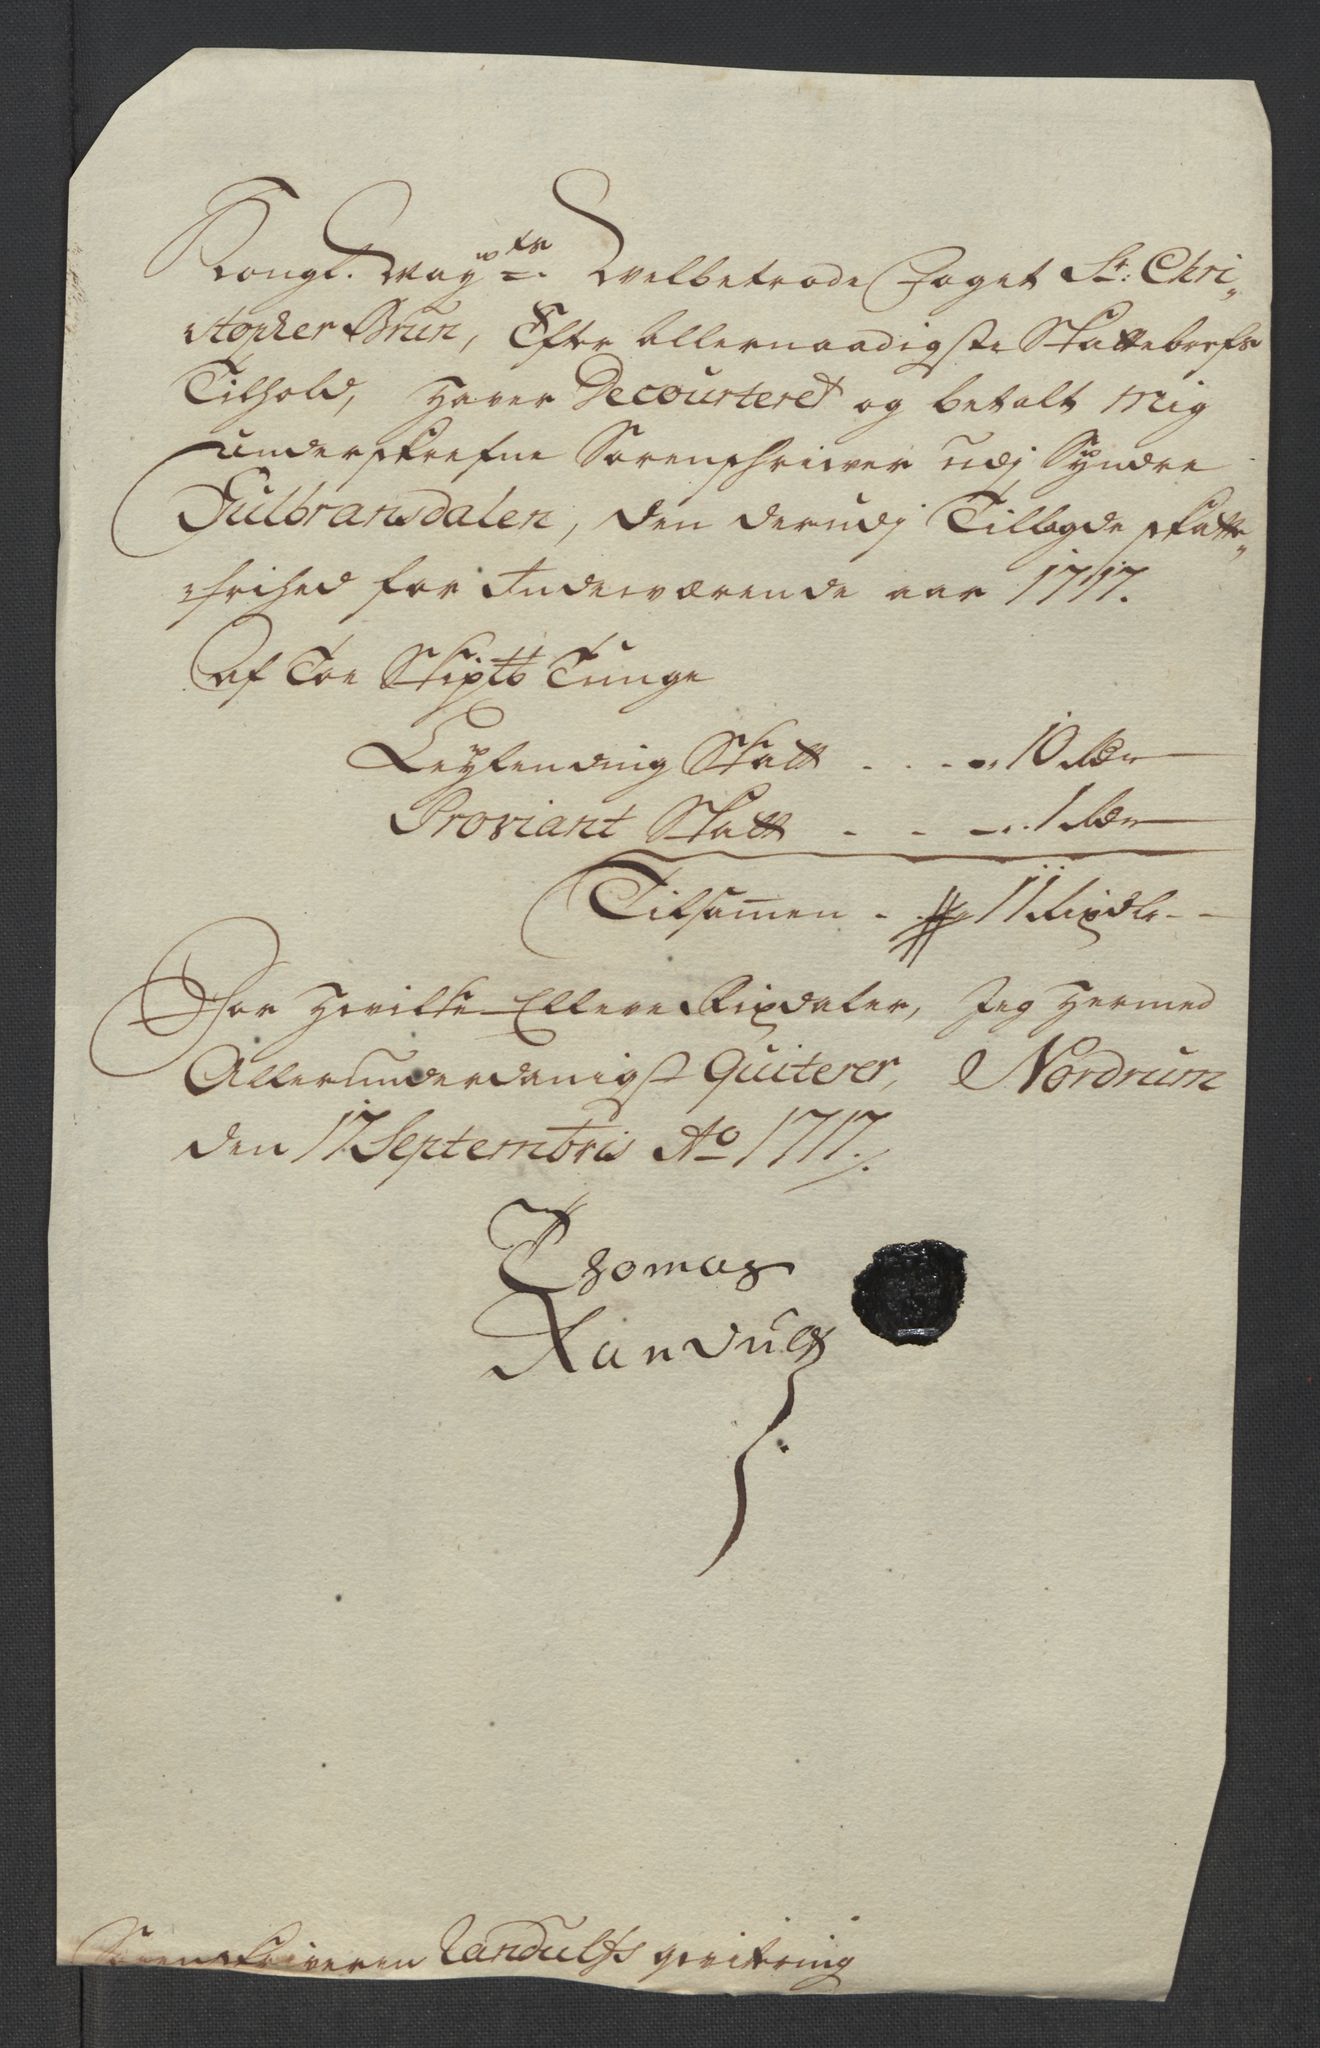 Kongl. May.ts Velbetrode Foget Sr: Chri„
stopher Brun, Efter Allernaadigste Skattebrefs
Tilhold, Hafver Decourteret og betalt Mig
underskrefne Sorenschriver udj Syndre
Gulbransdalen, den derudj Tillagde skatte„
frihed for Indeværende aar 1717.
Af Toe Skiptb Tunge
Leylending Skatt . . . . . 10 Rdr
Proviant Skatt . . . . . 1 Rdr
Tilsamen - 11 Rixdlr - -
For Hvilke Elleve Rixdaler, Jeg Hermed
Allerunderdanigst Quiterer, Nordrum
den 17 Septembris Ao 1717./.
Thomas
Randulf
Sorenskriveren Randulfs qvitring